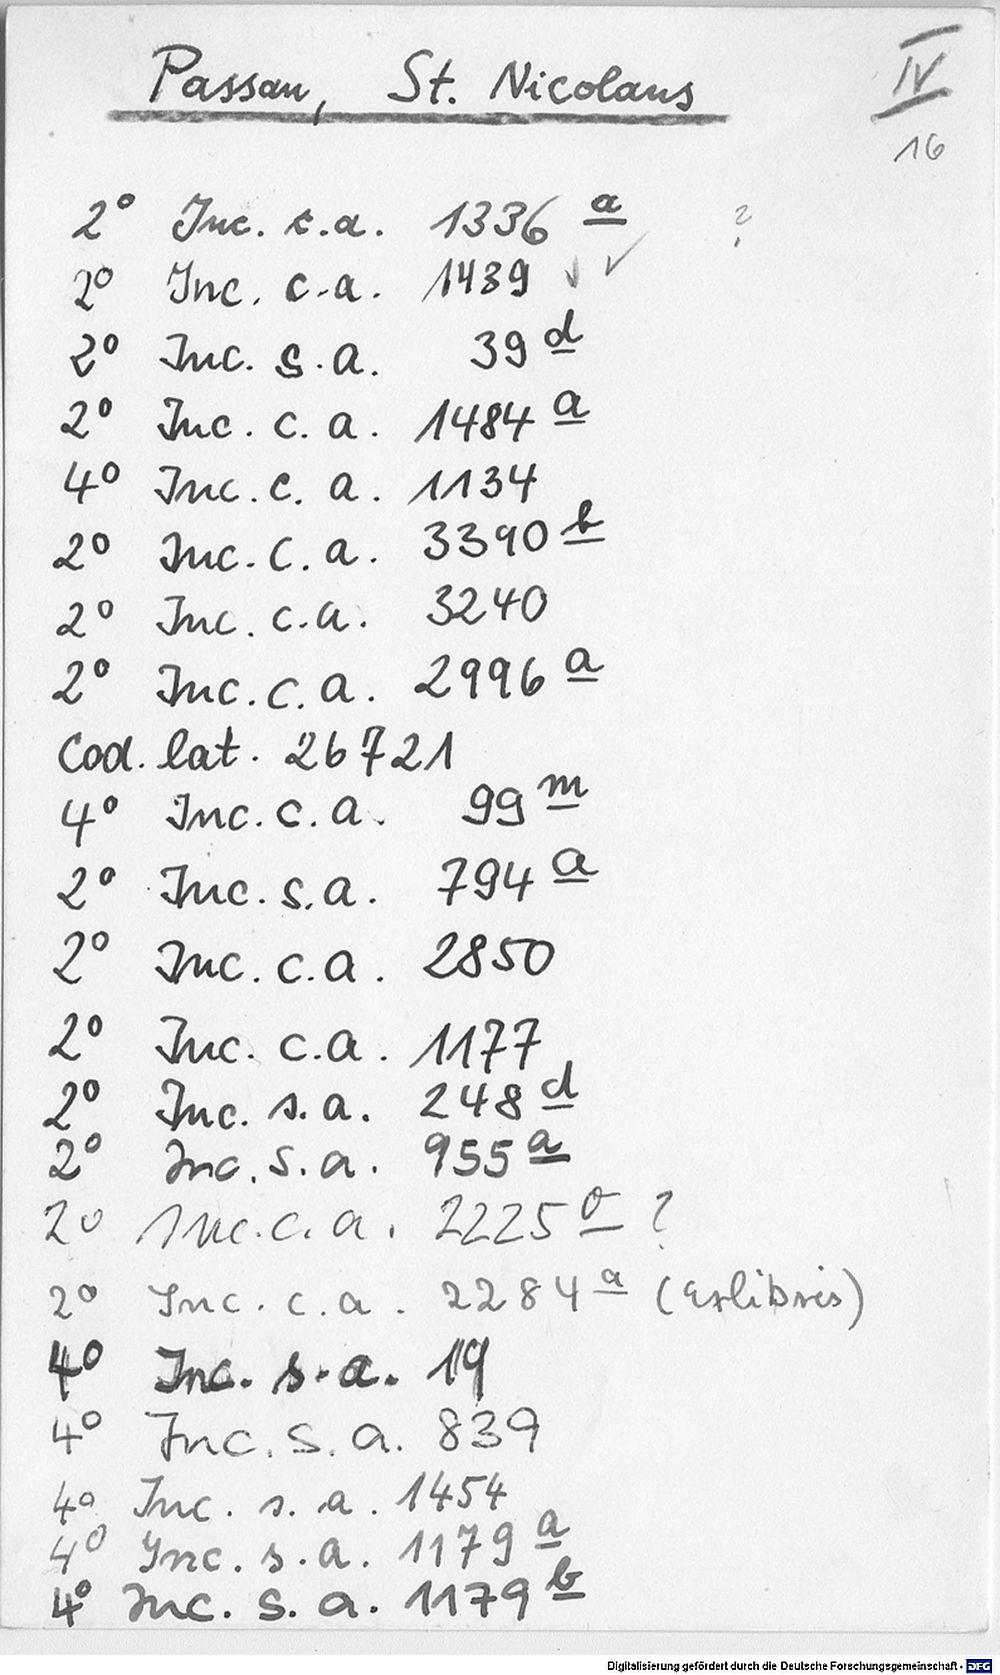 Passau, St. Nicolaus
IV
16
2° Inc. c.a. 1336 a ?
2° Inc. c.a. 1439 ✓ ✓
2° Inc. s.a. 39 d
2° Inc. c.a. 1484 a
4° Inc. c.a. 1134
2° Inc. c.a. 3390 b
2° Inc. c.a. 3240
2° Inc. c.a. 2996 a
Cod. lat. 26721
4° Inc. c.a. 99 m
2° Inc. s.a. 794 a
2° Inc. c.a. 2850
2° Inc. c.a. 1177
2° Inc. s.a. 248 d
2° Inc. s.a. 955 a
2° Inc. c.a. 2225 o ?
2° Inc. c.a. 2284 a (Exlibris)
4° Inc. s.a. 19
4° Inc. s.a. 839
4° Inc. s.a. 1454
4° Inc. s.a. 1179 a
4° Inc. s.a. 1179 b
Digitalisierung gefördert durch die Deutsche Forschungsgemeinschaft - DFG